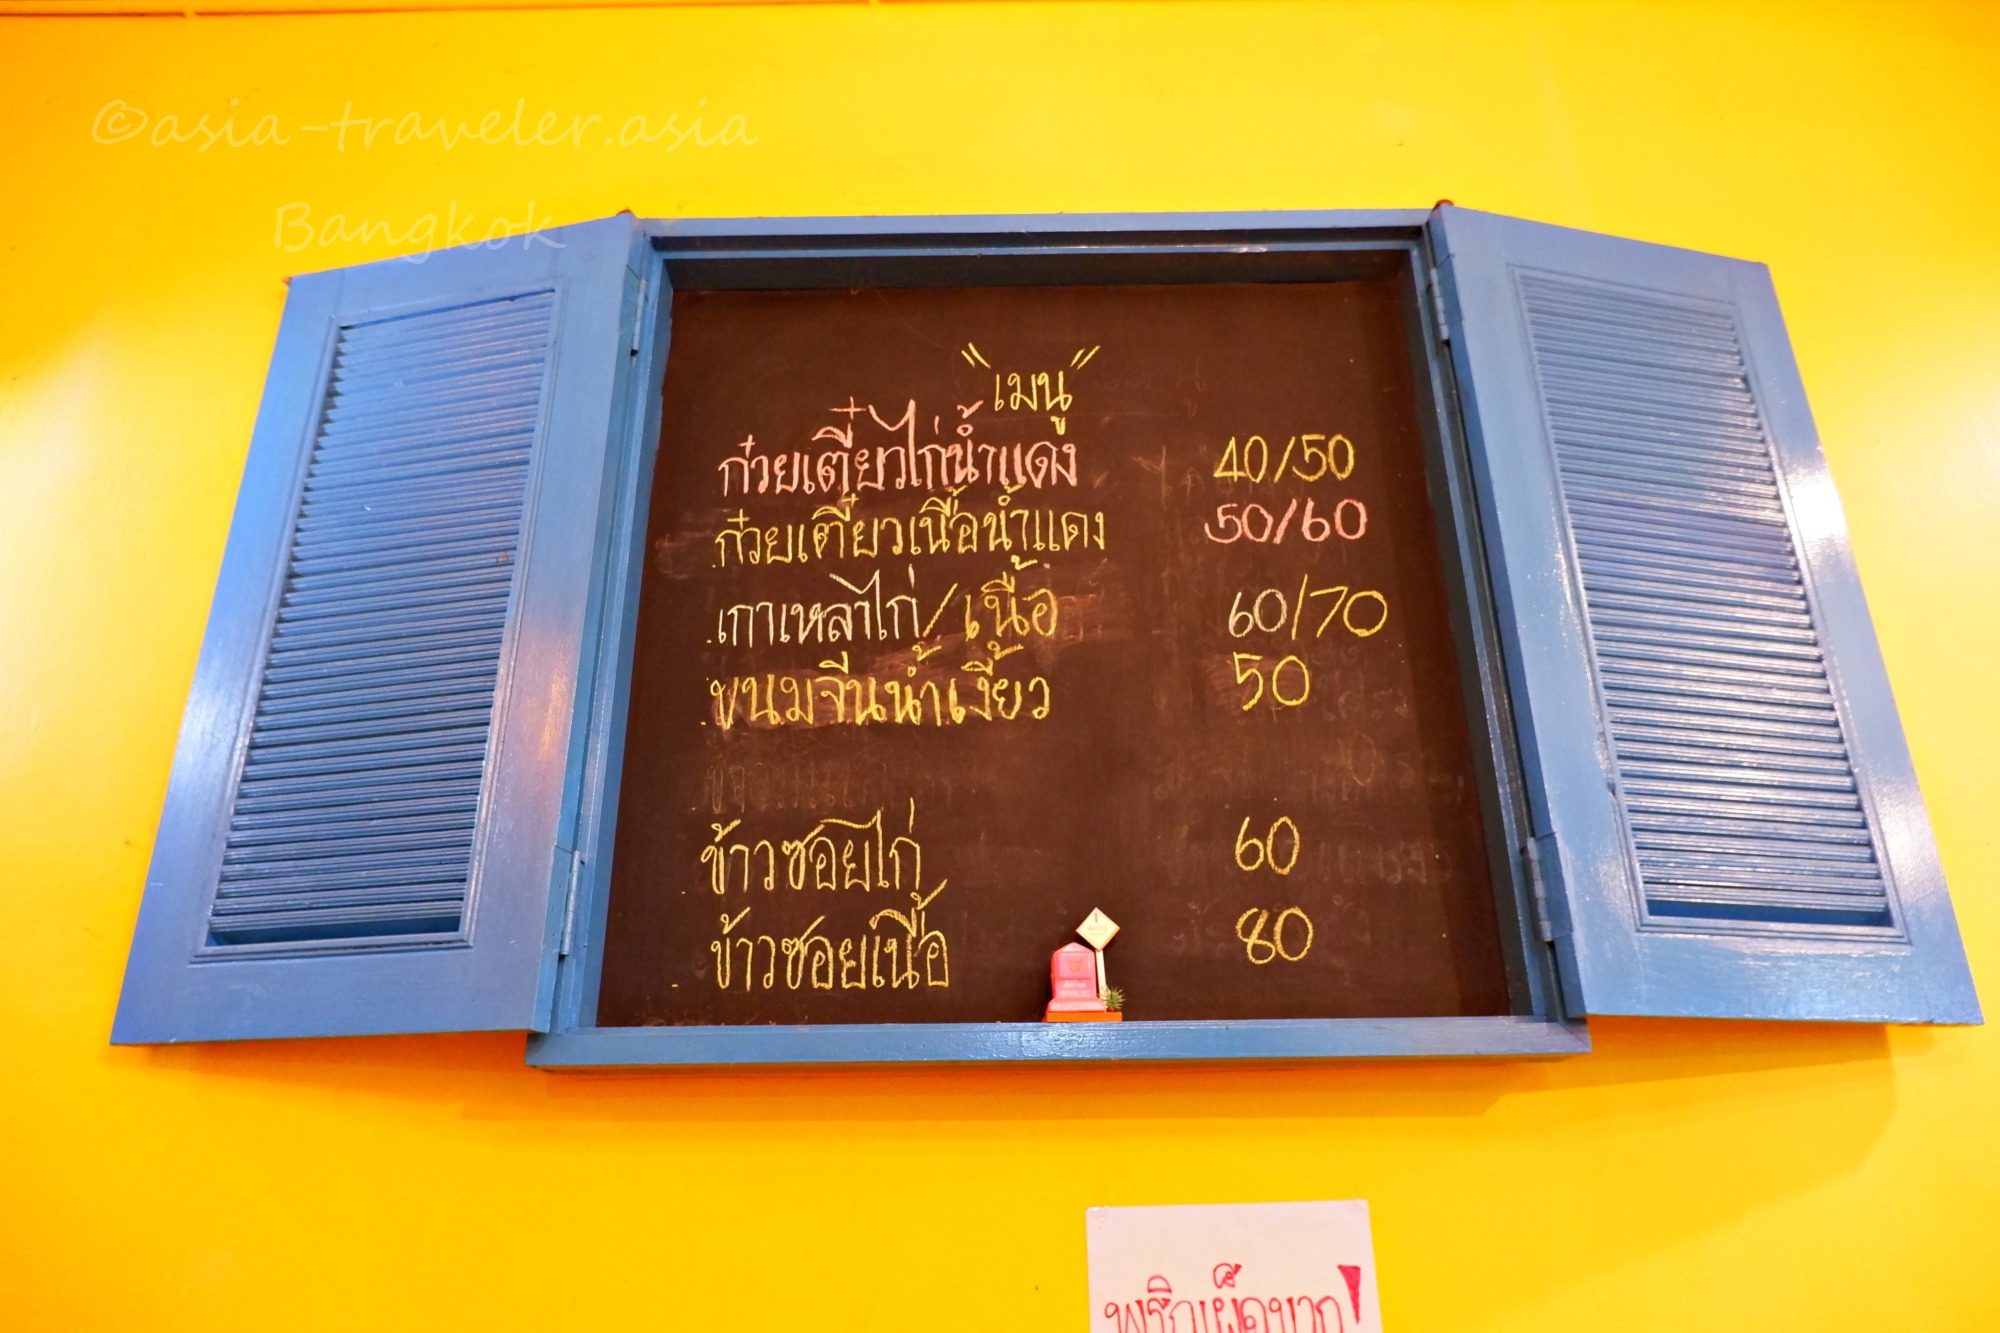 ©asia-traveler.asia
Bangkok
"เมนู"
ก๋วยเตี๋ยวไก่น้ำแดง 40/50
ก๋วยเตี๋ยวเนื้อน้ำแดง 50/60
เกาเหลาไก่/เนื้อ 60/70
ขนมจีนน้ำเงี้ยว 50
ข้าวซอยไก่ 60
ข้าวซอยเนื้อ 80
พริกเผ็ดมาก!